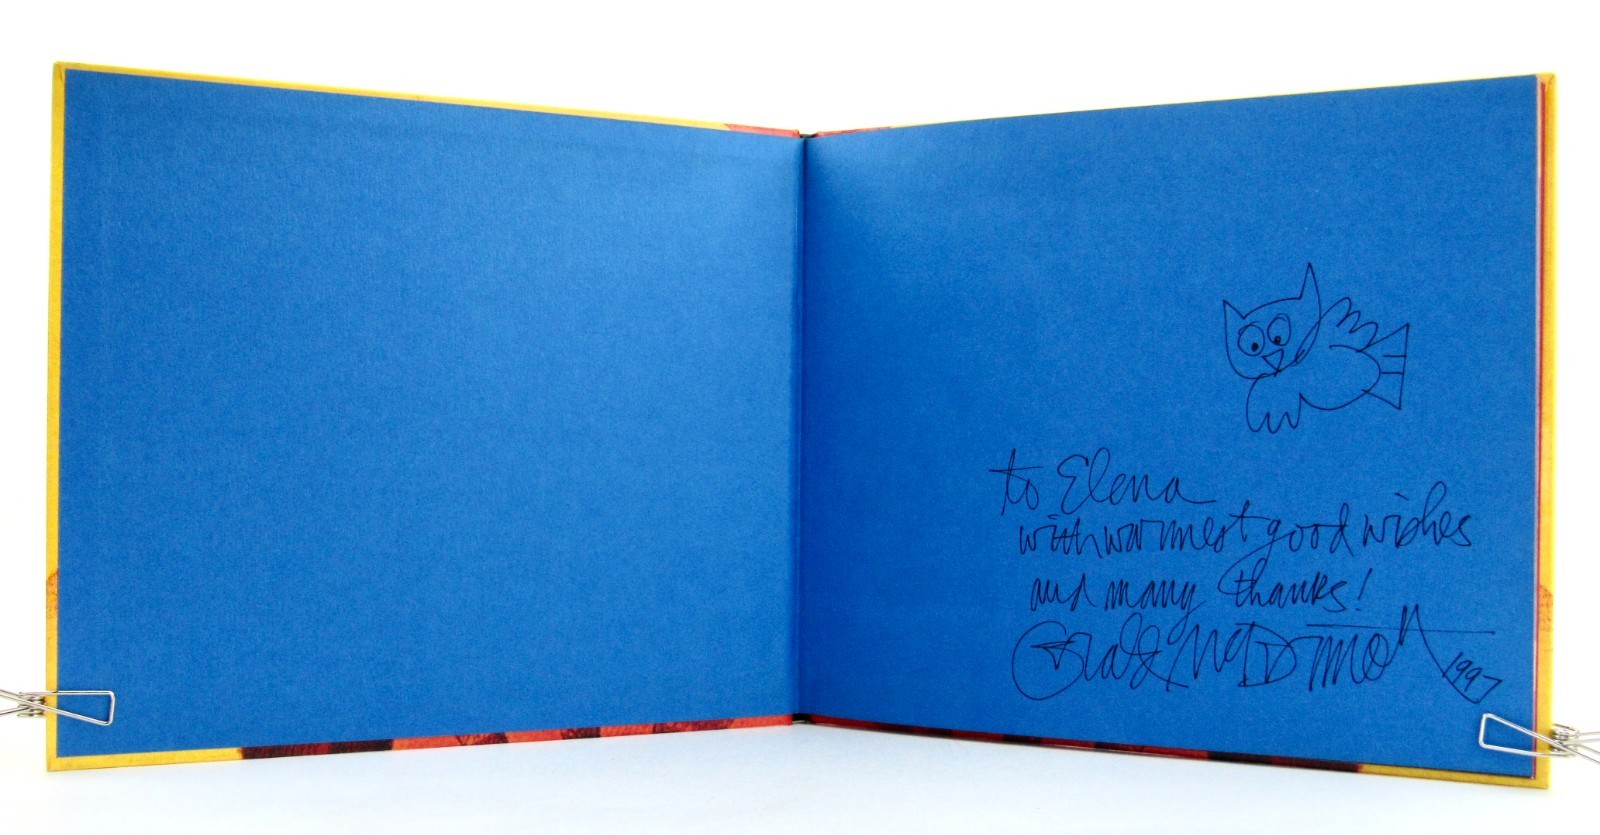 to Elena
with warmest good wishes
and many thanks!
Gerald McDermott 1997